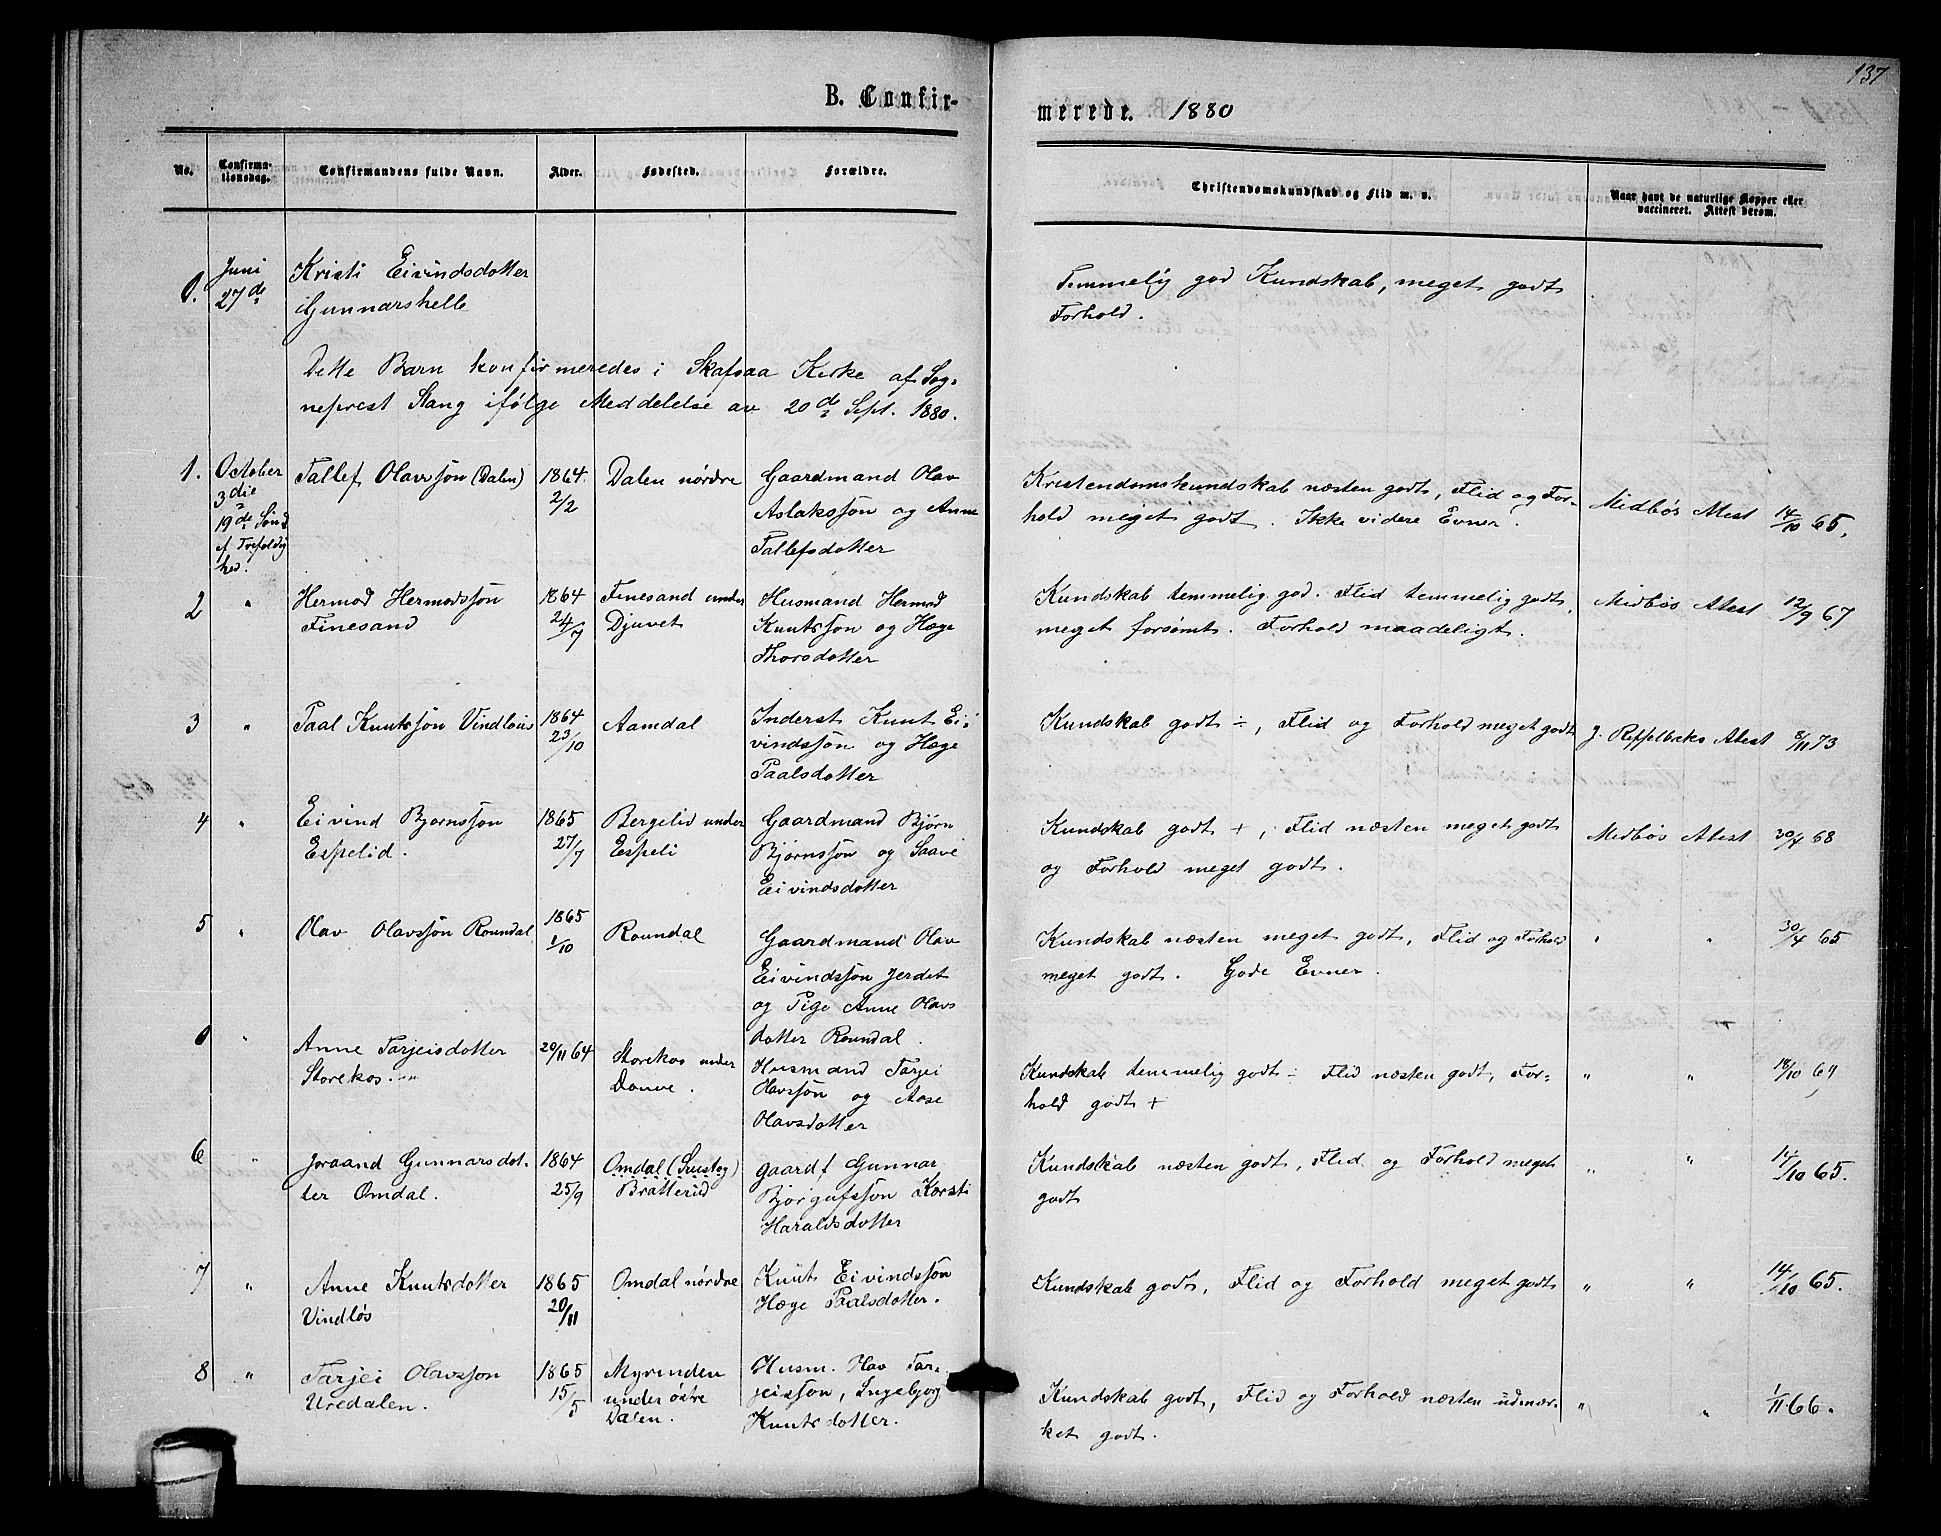 137
B. Confir-
merede. 1880
No.
Confirma-
tionsdag.
Confirmandens fulde Navn.
Alder.
Fødested.
Forældre.
Christendomskundskab og Flid m. v.
Naar havt de naturlige Kopper eller
vaccineret. Attest derom.
0. Juni
27de
Kristi Eivindsdotter
Gunnarshelle
Temmelig god Kundskab, meget godt
Forhold.
Dette Barn konfirmeredes i Skafsaa Kirke af Sog-
neprest Stang ifølge Meddelelse av 20de Sept. 1880.
1. October
3die
19de Sønd
ef. Trefoldig
hed.
Tallef Olavssøn (Dalen)
1864
2/2
Dalen nørdre
Gaardmand Olav
Aslakssøn og Anne
Tallefsdotter
Kristendomskundskab næsten godt, Flid og For-
hold meget godt. Ikke videre Evner.
Midbøs Atest 14/10 65.
2 "
Hermod Hermodssøn
Finesand
1864
24/7
Finesand under
Djuvet
Husmand Hermod
Knutssøn og Hæge
Thorsdotter
Kundskab temmelig god. Flid temmelig godt,
meget forsømt. Forhold maadeligt.
Midbøs Atest 12/9 67
3 "
Paal Knutssøn Vindløus
1864
23/10
Aamdal
Inderst Knut Ei-
vindssøn og Hæge
Paalsdotter
Kundskab godt ÷, Flid og Forhold meget godt
J. Reppelbeks Atest 8/11 73
4 "
Eivind Bjørnssøn
Espelid.
1865
27/7
Bergelid under
Espeli
Gaardmand Bjørn
Bjørnssøn og Saave
Eivindsdotter
Kundskab godt +, Flid næsten meget godt
og Forhold meget godt.
Midbøs Atest 30/4 68
5 "
Olav Olavssøn Roundal
1865
1/10
Roundal
Gaardmand Olav
Eivindssøn Jerdet
og Pige Anne Olavs
dotter Roundal.
Kundskab næsten meget godt, Flid og Forhold
meget godt. Gode Evner.
" " 30/4 65
0 "
Anne Tarjeisdotter
Storekos.
20/11 64
Storekos under
Douve.
Husmand Tarjei
Olavssøn og Aase
Olavsdotter
Kundskab temmelig godt ÷ Flid næsten godt, For-
hold godt +
" " 18/10 69
6 "
Joraand Gunnarsdot-
ter Omdal.
1864
25/9
Omdal (Sustog)
Bratterud
gaardf Gunnar
Bjørgufssøn Korsti
Haraldsdotter
Kundskab næsten godt, Flid og Forhold meget
godt
" " 14/10 65.
7 "
Anne Knutsdotter
Vindløs
1865
20/11
Omdal nørdre
Knut Eivindssøn
Hæge Paalsdotter.
Kundskab godt, Flid og Forhold meget godt
" " 14/10 65.
8 "
Tarjei Olavssøn
Uredalen.
1865
15/5
Myrinden
under østre
Dalen.
Husm. Olav Tar-
jeissøn, Ingebjorg
Knutsdotter.
Kundskab godt, Flid og Forhold næsten udmær-
ket godt.
" " 1/11 66.